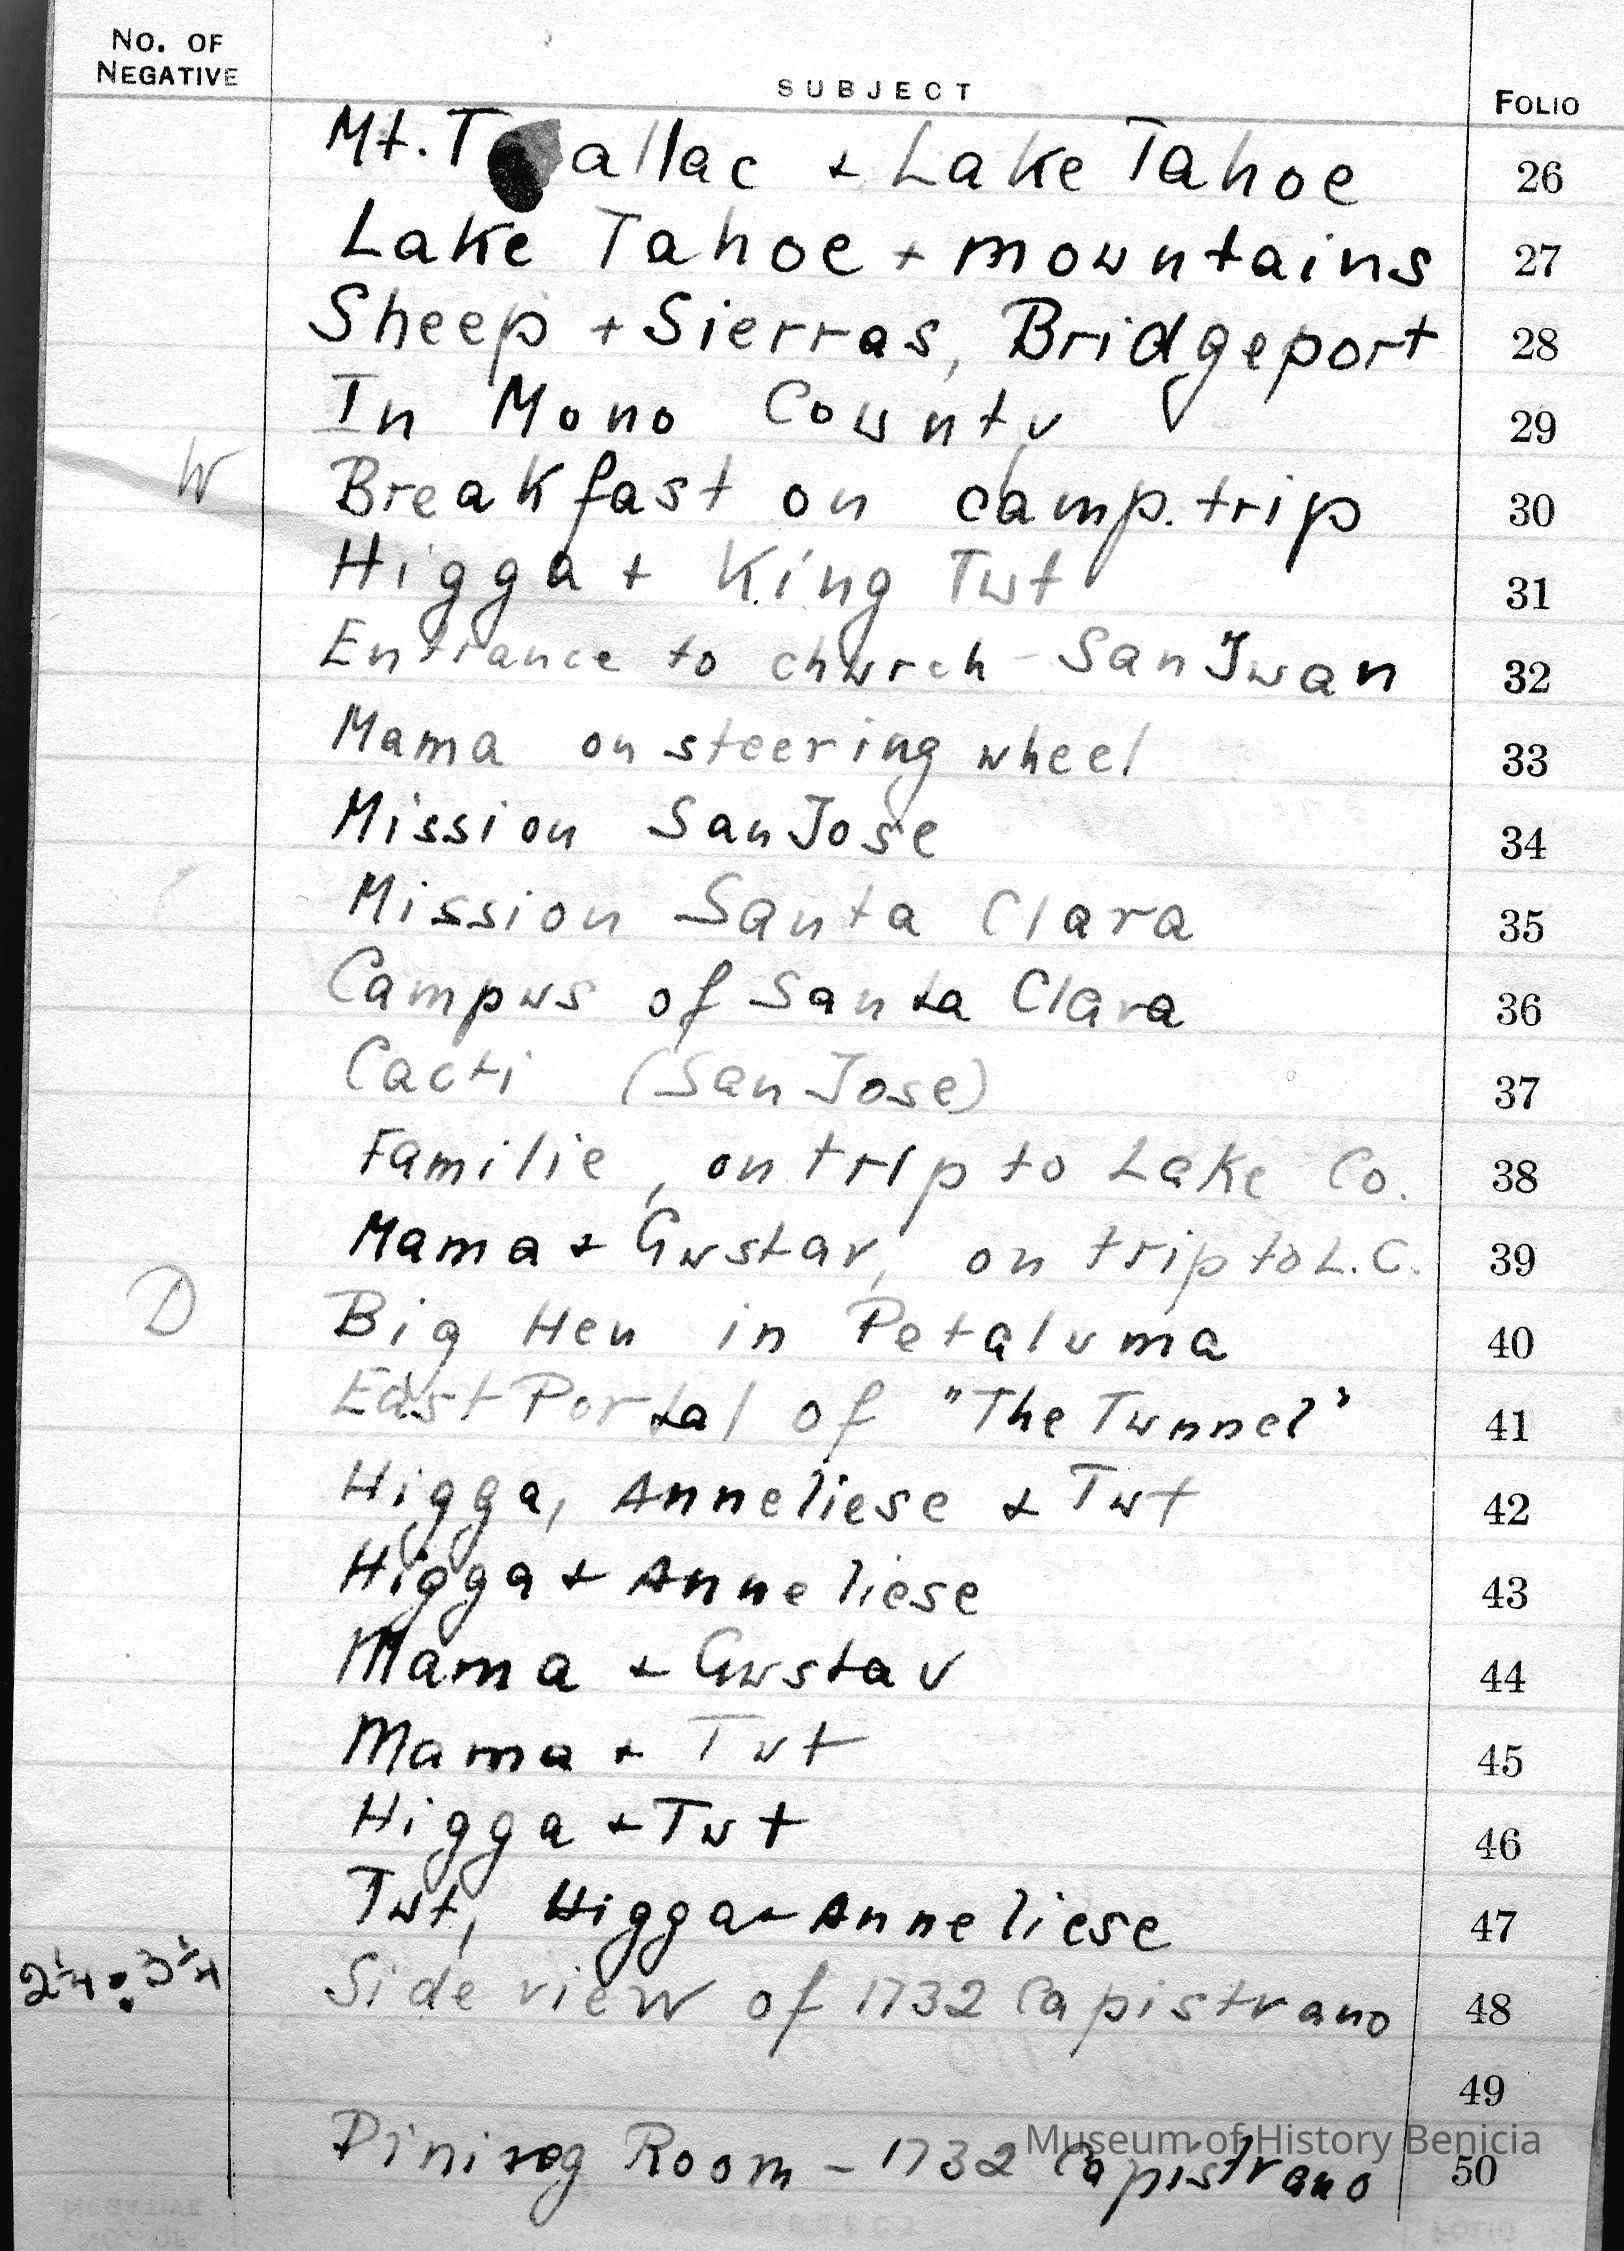 No. of Negative SUBJECT Folio
Mt. Tallac + Lake Tahoe 26
Lake Tahoe + mountains 27
Sheep + Sierras, Bridgeport 28
In Mono County 29
W Breakfast on camp. trip 30
Higga + King Tut 31
Entrance to church - San Juan 32
Mama on steering wheel 33
Mission San Jose 34
Mission Santa Clara 35
Campus of Santa Clara 36
Cacti (San Jose) 37
Familie, on trip to Lake Co. 38
Mama + Gustav, on trip to L.C. 39
D Big Hen in Petaluma 40
East Portal of "The Tunnel" 41
Higga, Anneliese + Tut 42
Higga + Anneliese 43
Mama + Gustav 44
Mama + Tut 45
Higga + Tut 46
Tut, Higga + Anneliese 47
2¼ : 3¼ Side view of 1732 Capistrano 48
49
Dining Room - 1732 Capistrano 50
Museum of History Benicia